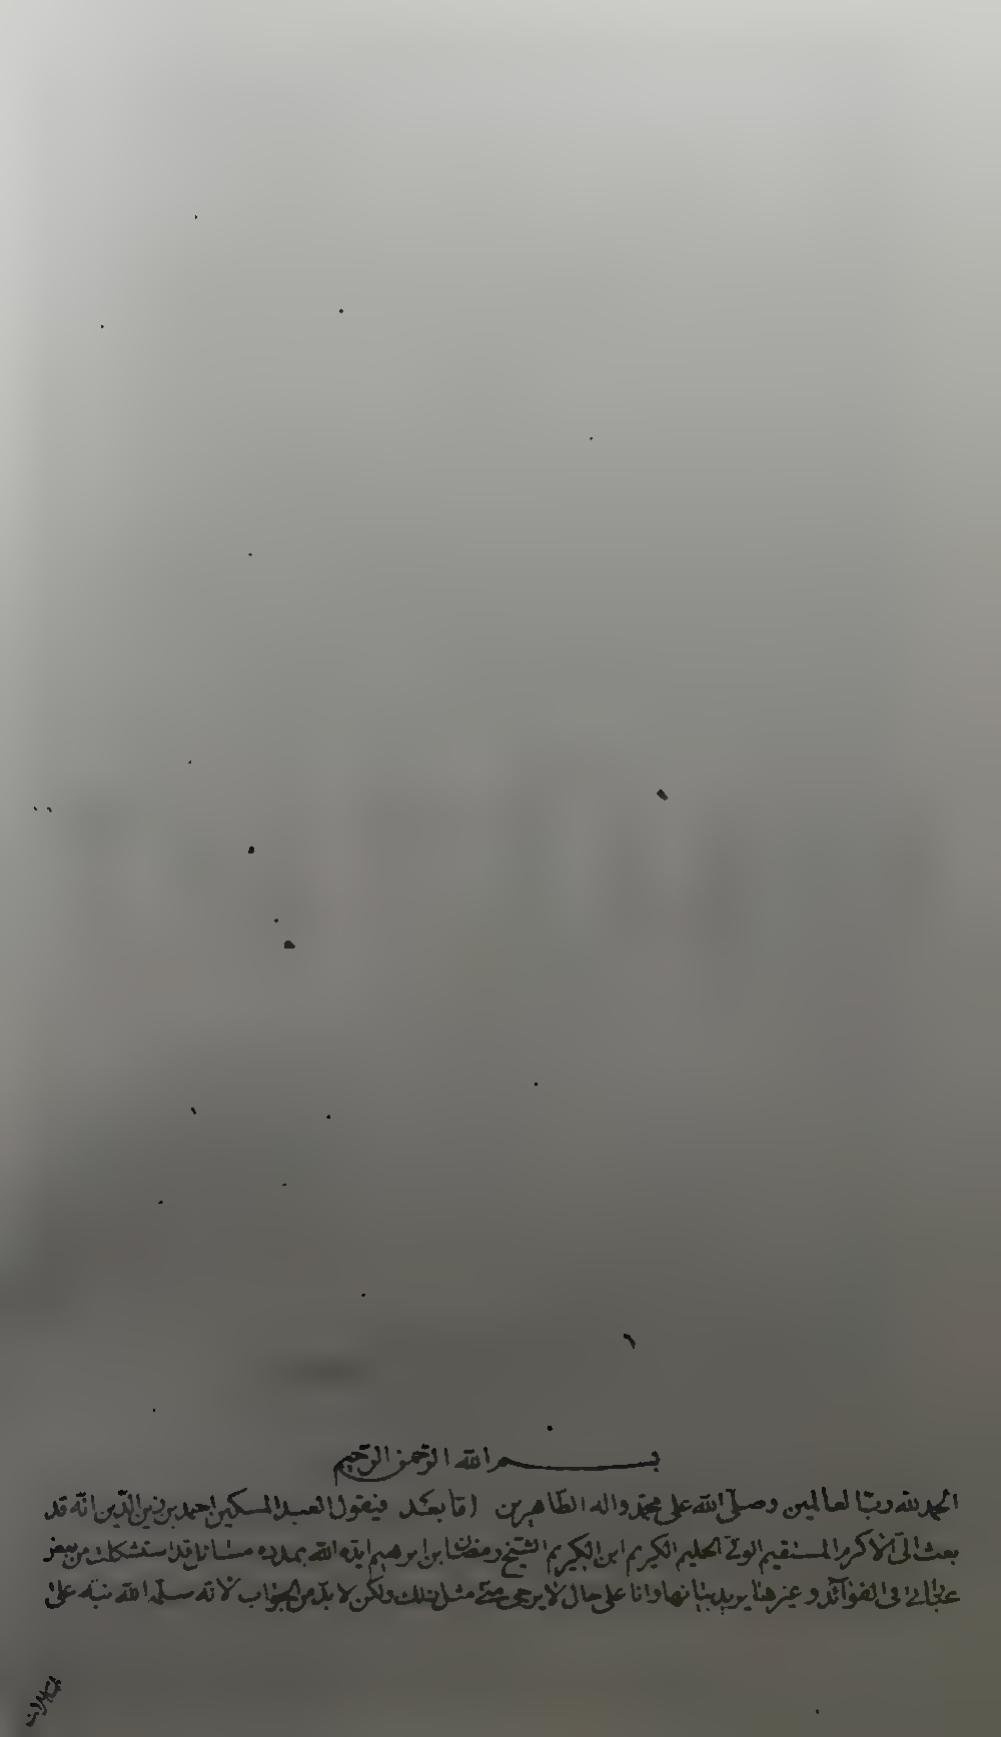 بسم الله الرحمن الرحيم
الحمد لله رب العالمين وصلى الله على محمد واله الطاهرين اما بعد فيقول العبد المسكين احمد بن زين الدين انه قد
بعث الى الاكرم المستقيم الولي الحليم الكريم ابن الكريم الشيخ رمضان ابن ابرهيم ايده الله بمدده مسائل قد استشكلت من بعض
في الفوائد وغيرها يريد بيانها وانا على حال لا يرجى مثل تلك ولكن لا بد من الجواب لانه سلمه الله نبه على